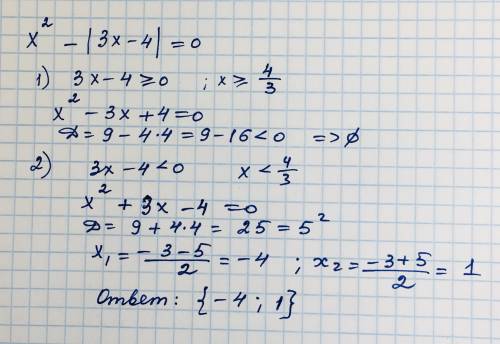 x² - |3x-4| = 0
1) 3x-4 ≥ 0 ; x ≥ 4/3
x² - 3x + 4 = 0
D = 9 - 4·4 = 9 - 16 < 0 => ∅
2) 3x-4 < 0 x < 4/3
x² + 3x - 4 = 0
D = 9 + 4·4 = 25 = 5²
x₁ = (-3-5)/2 = -4 ; x₂ = (-3+5)/2 = 1
Ответ: {-4; 1}